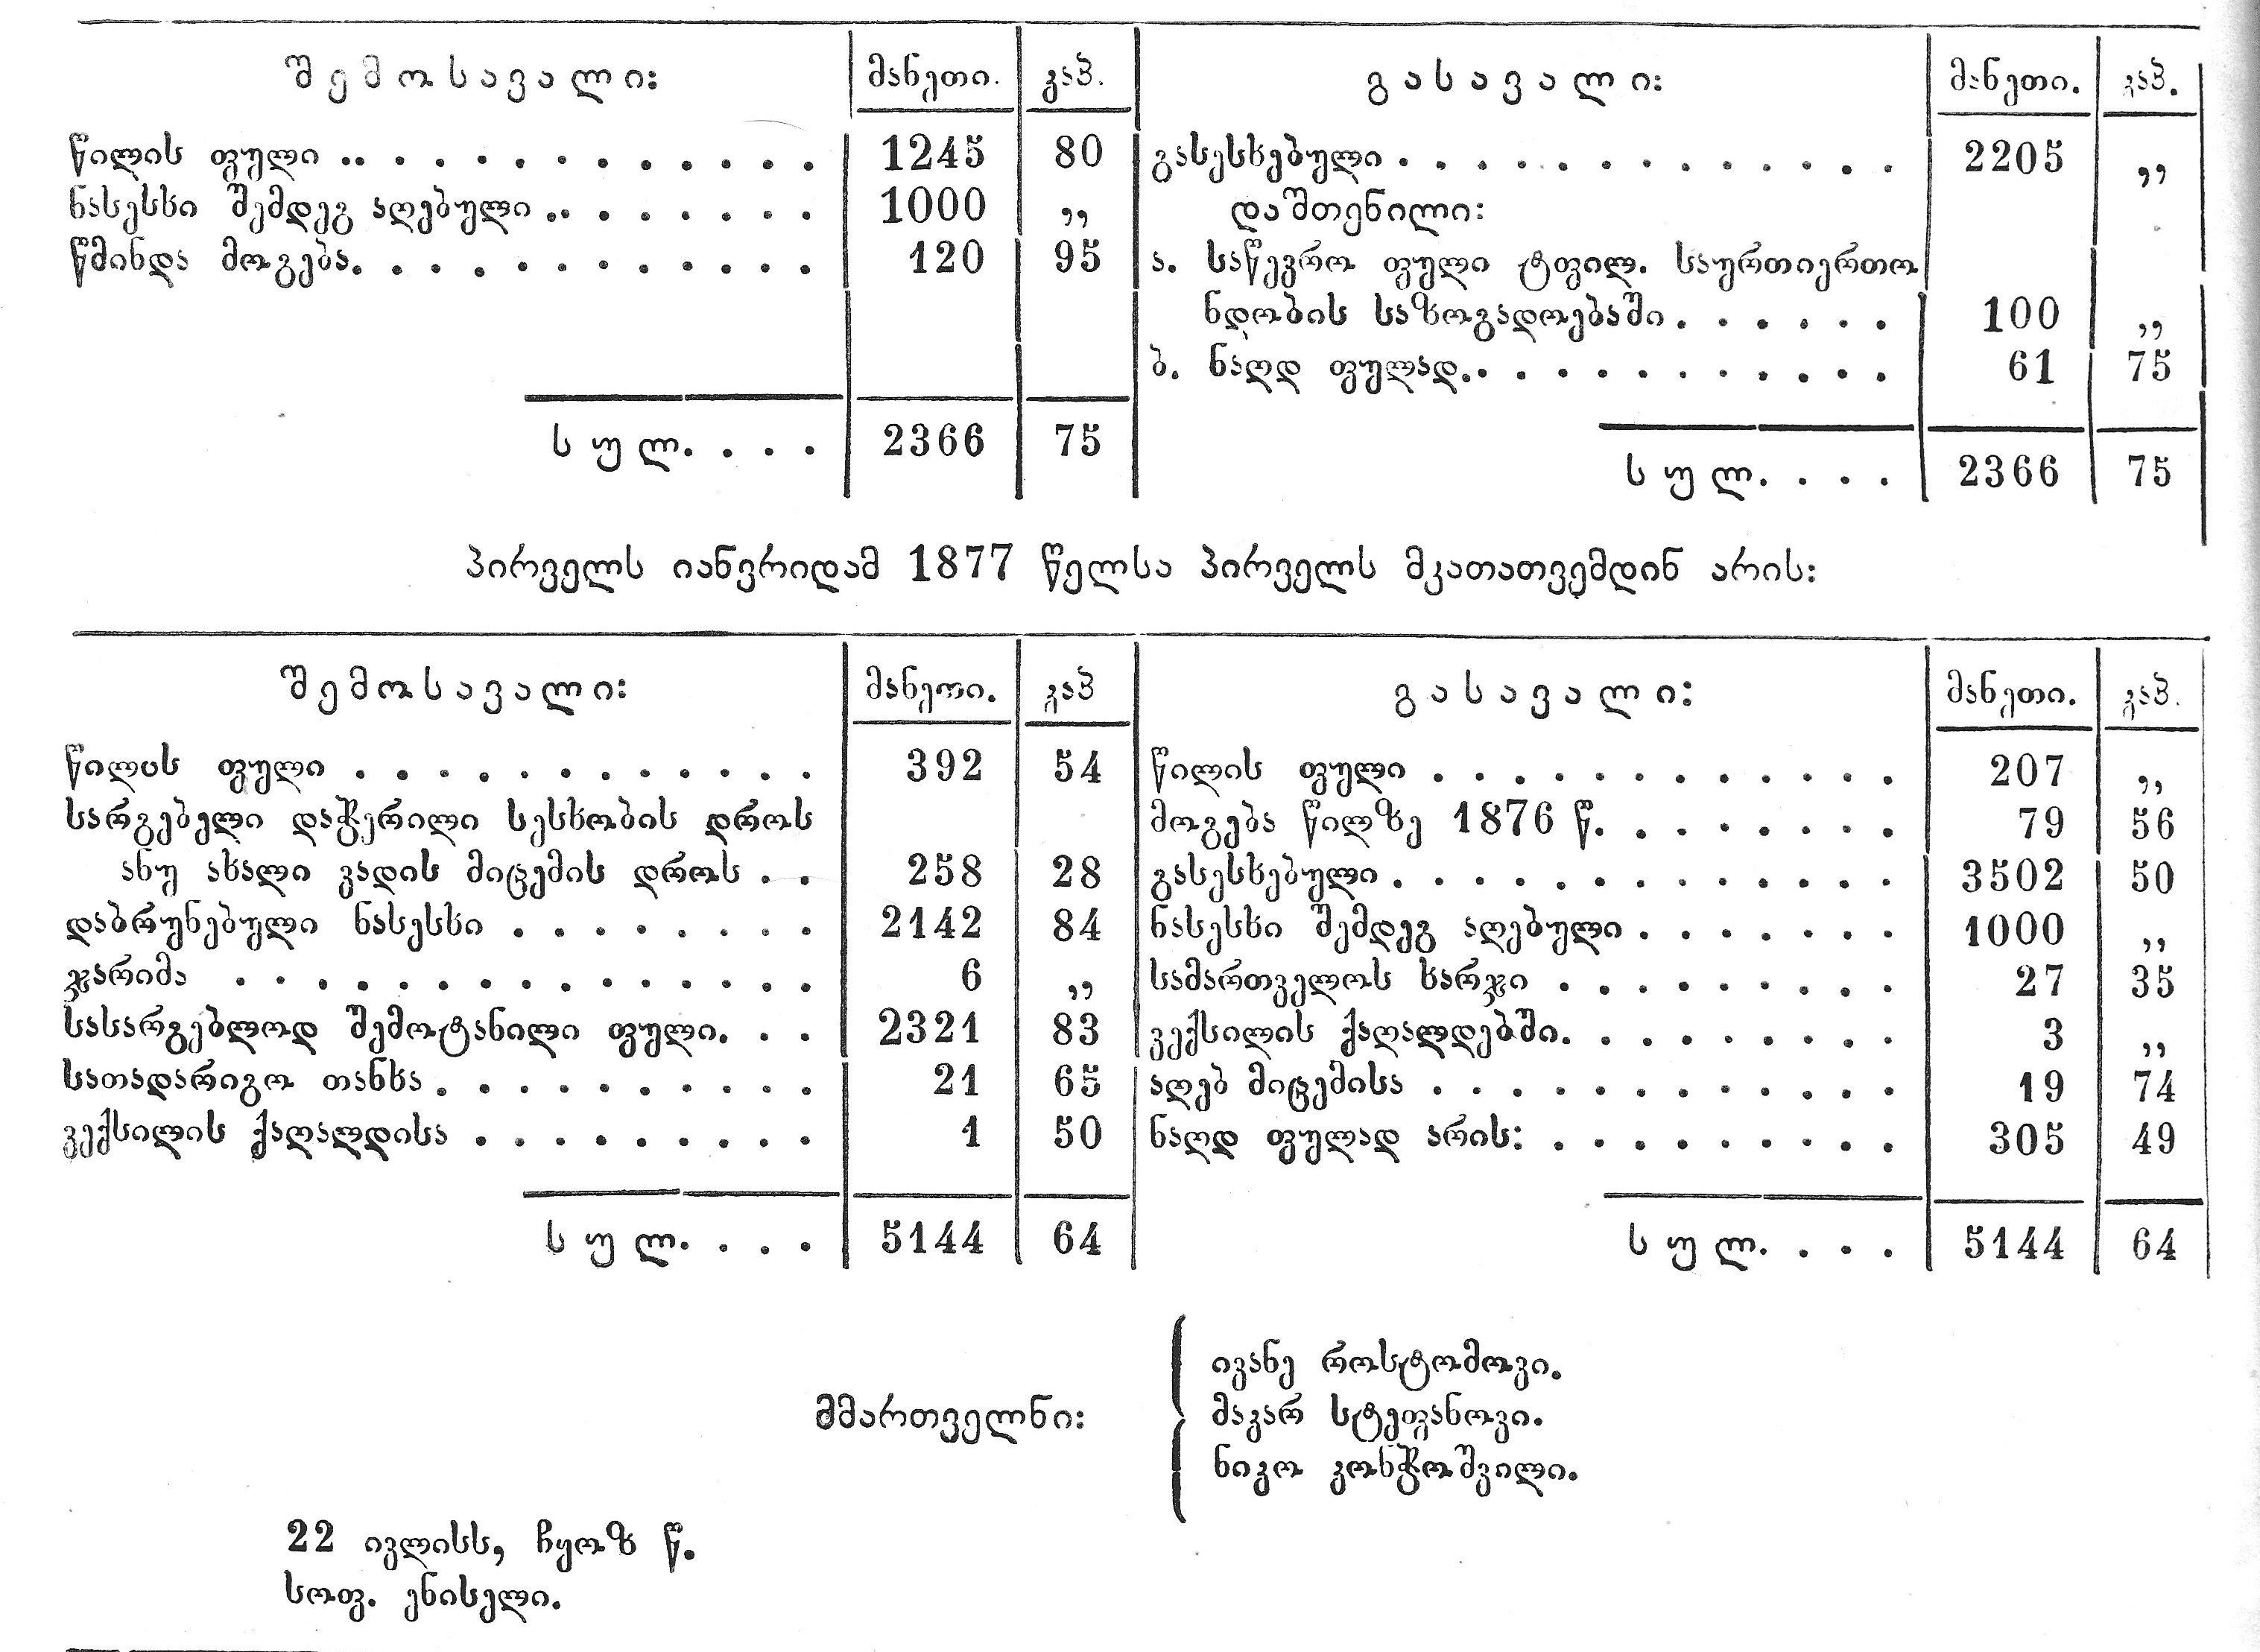 შემოსავალი: მანეთი. კაპ. გასავალი: მანეთი. კაპ.
წილის ფული .. . . . . . . . . . . . 1245 80 გასესხებული . . . . . . . . . . . . . 2205 „
ნასესხი შემდეგ აღებული .. . . . . . . 1000 „ დაშთენილი:
წმინდა მოგება. . . . . . . . . . . . 120 95 ა. საწევრო ფული ტფილ. საურთიერთო
ნდობის საზოგადოებაში . . . . . . 100 „
ბ. ნაღდ ფულად. . . . . . . . . . . . 61 75
სულ. . . . 2366 75
სულ. . . . 2366 75
პირველს იანვრიდამ 1877 წელსა პირველს მკათათვემდინ არის:
შემოსავალი: მანეთი. კაპ გასავალი: მანეთი. კაპ.
წილის ფული . . . . . . . . . . . . 392 54 წილის ფული . . . . . . . . . . . . 207 „
სარგებელი დაჭერილი სესხობის დროს მოგება წილზე 1876 წ. . . . . . . . 79 56
ანუ ახალი ვადის მიცემის დროს . . 258 28 გასესხებული . . . . . . . . . . . . . 3502 50
დაბრუნებული ნასესხი . . . . . . . . 2142 84 ნასესხი შემდეგ აღებული . . . . . . . 1000 „
ჯარიმა . . . . . . . . . . . . . . . 6 „ სამართველოს ხარჯი . . . . . . . . . 27 35
სასარგებლოდ შემოტანილი ფული. . . 2321 83 ვექსილის ქაღალდებში. . . . . . . . . 3 „
სათადარიგო თანხა . . . . . . . . . . 21 65 აღებ მიცემისა . . . . . . . . . . . . 19 74
ვექსილის ქაღალდისა . . . . . . . . . 1 50 ნაღდ ფულად არის: . . . . . . . . . 305 49
სულ. . . . 5144 64 სულ. . . . 5144 64
ივანე როსტომოვი.
მმართველნი: მაკარ სტეფანოვი.
ნიკო კონჭოშვილი.
22 ივლისს, ჩყოზ წ.
სოფ. ენისელი.